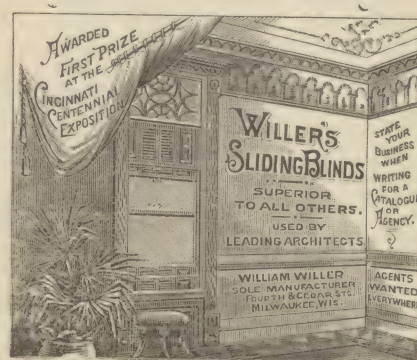 AWARDED
FIRST PRIZE
AT THE
CINCINNATI
CENTENNIAL
EXPOSITION
WILLER'S
SLIDING BLINDS
SUPERIOR
TO ALL OTHERS.
USED BY
LEADING ARCHITECTS.
WILLIAM WILLER
SOLE MANUFACTURER
FOURTH & CEDAR STS.
MILWAUKEE, WIS.
STATE
YOUR
BUSINESS
WHEN
WRITING
FOR A
CATALOGUE
OR
AGENCY.
AGENTS
WANTED
EVERYWHERE